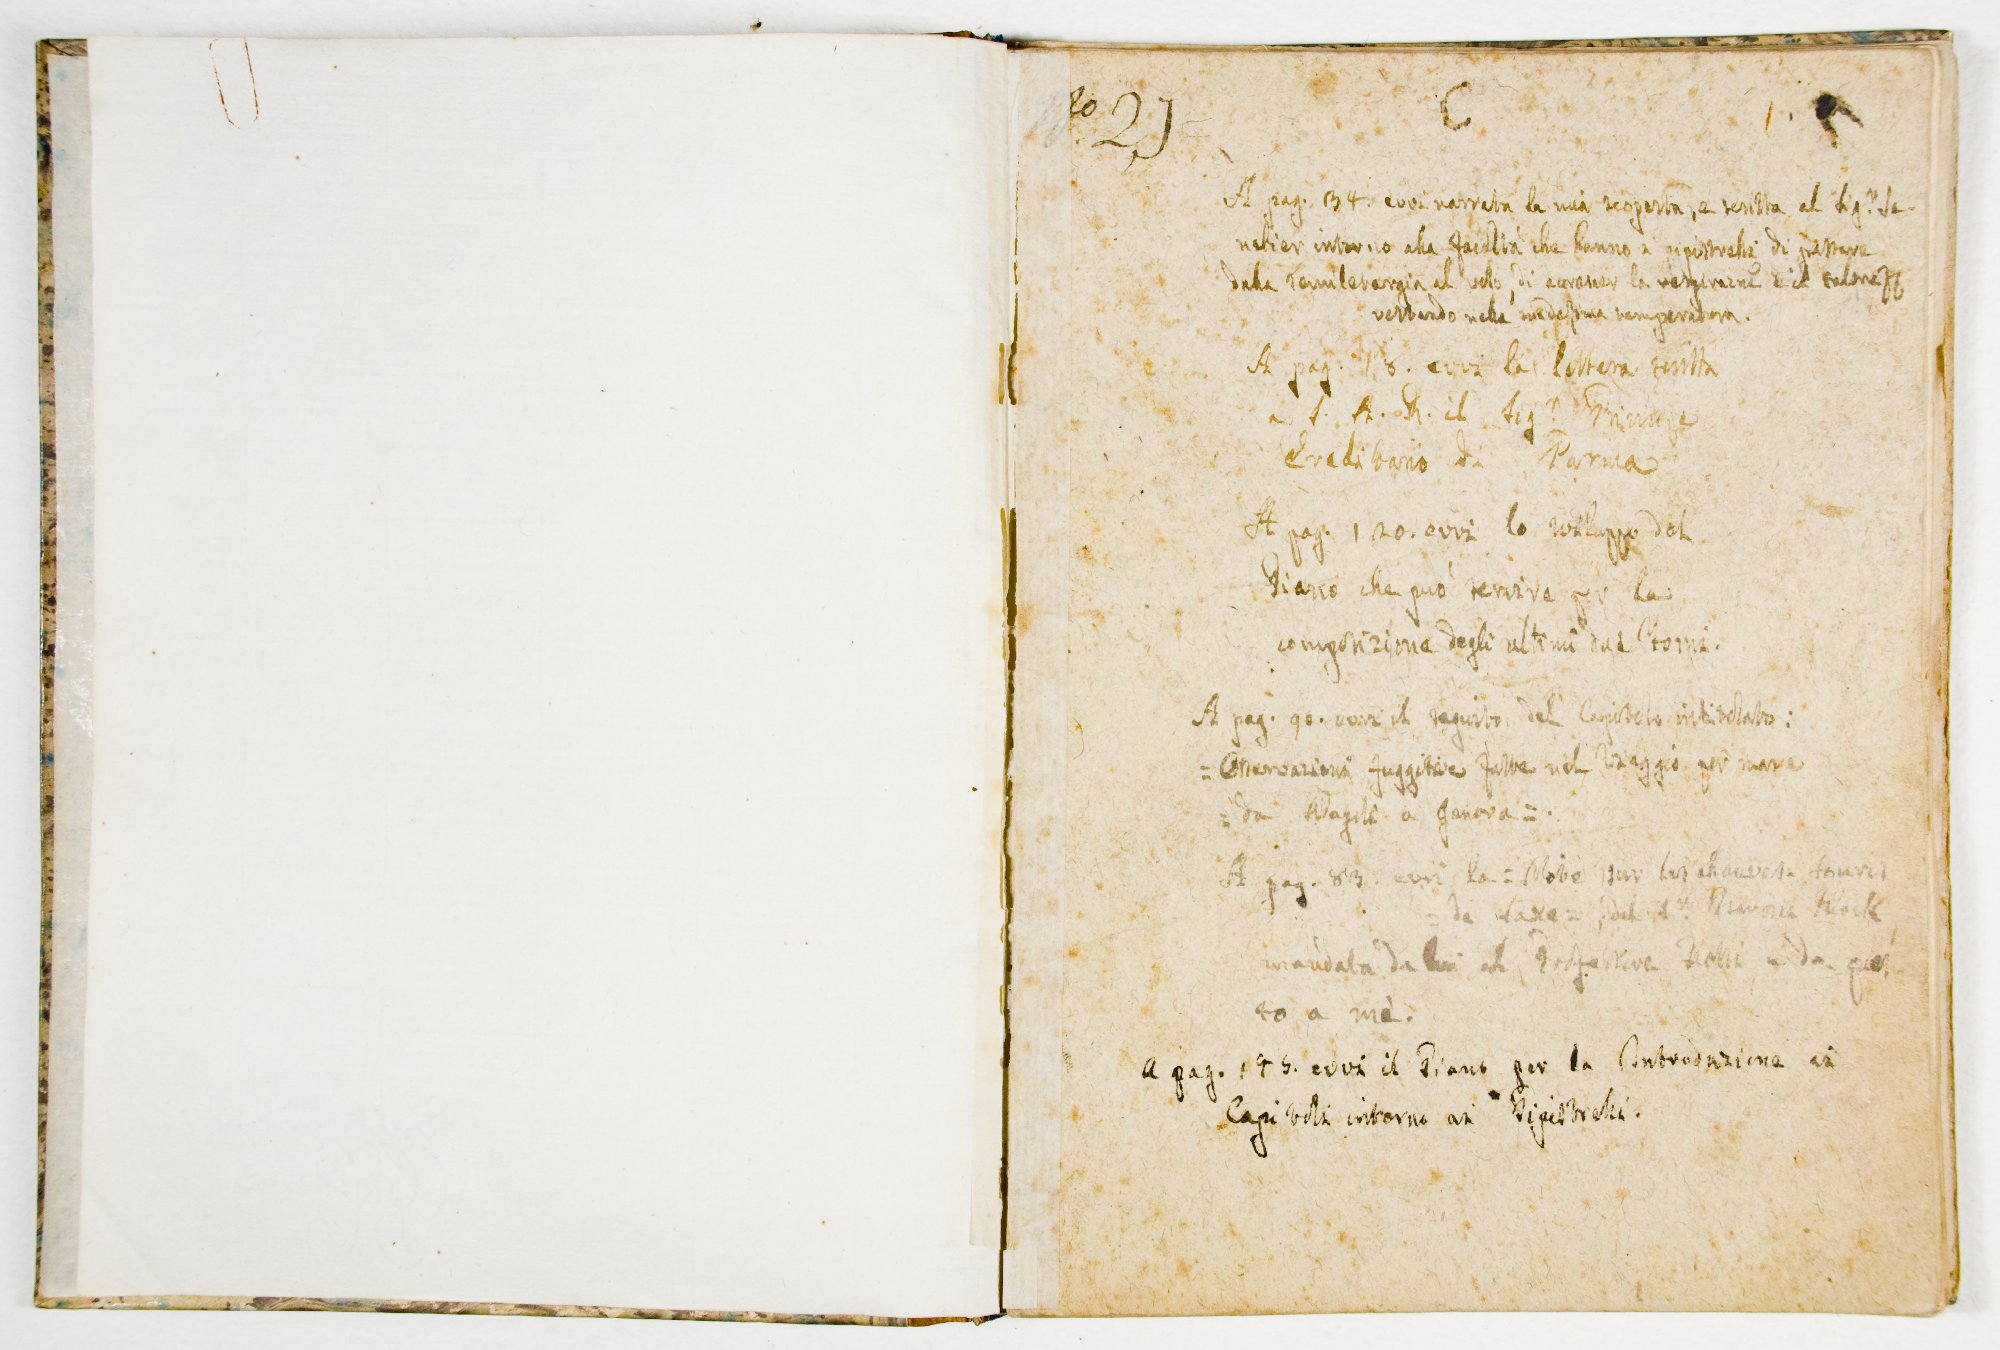 No 2J C 1.
A pag. 34. evvi narrata la mia scoperta, e scritta al Sig.r Se-
nebier intorno alla facoltà che hanno i pipistrelli di passare
dalla semiletargia al volo, di accrescer la respirazne e il calore
restando nella medesima temperatura.
A pag. 18. evvi la lettera scritta
a S. A. R. il Sig.r Principe
Ereditario di Parma
A pag. 120. evvi lo sviluppo del
Piano che può servire per la
composizione degli ultimi due Tomi.
A pag. 90. evvi il seguito del Capitolo intitolato:
= Osservazioni fuggitive fatte nel Viaggio per mare
= da Napoli a Genova =.
A pag. 83. evvi la = Note sur les chauves-souris
= de Saxe =, del Sr.
mandata da lui al Professore Rossi e da ques
to a me.
A pag. 145. evvi il Piano per la Introduzione ai
Capitoli intorno ai Pipistrelli.